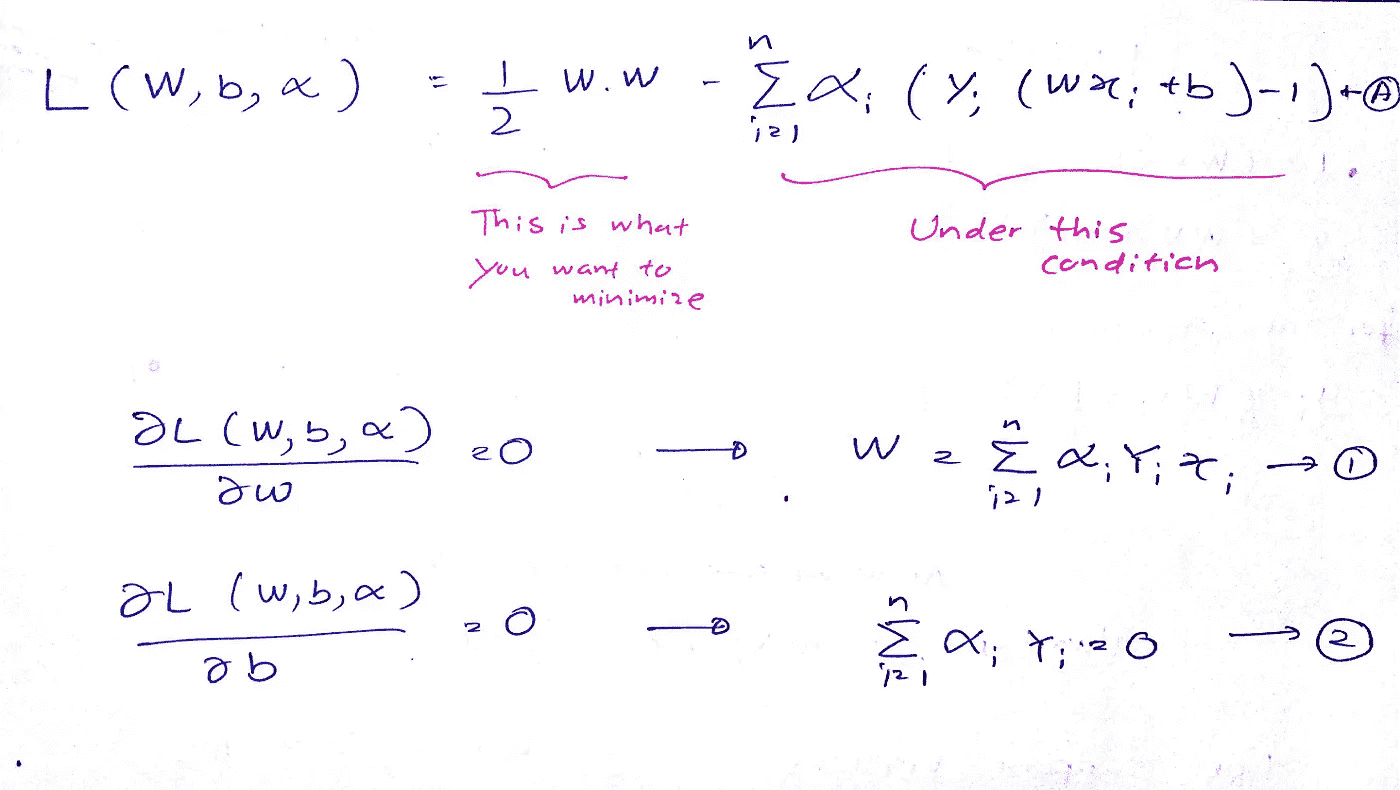 L (W, b, α) = 1/2 W.W - Σ_{i=1}^{n} α_i (Y_i (W x_i + b) - 1) → Ⓐ
This is what
you want to
minimize
Under this
condition
∂L (W, b, α) / ∂w = 0 → W = Σ_{i=1}^{n} α_i Y_i x_i → ①
∂L (W, b, α) / ∂b = 0 → Σ_{i=1}^{n} α_i Y_i = 0 → ②